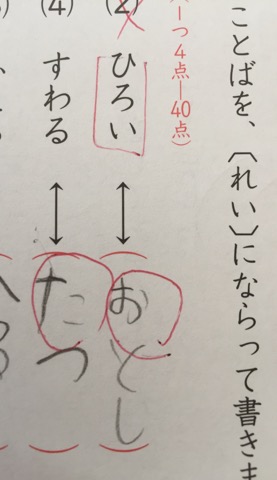 ことばを、〔れい〕にならって書きま
一つ4点―40点)
(2) ひろい ↔ (おとし)
(4) すわる ↔ (たつ)